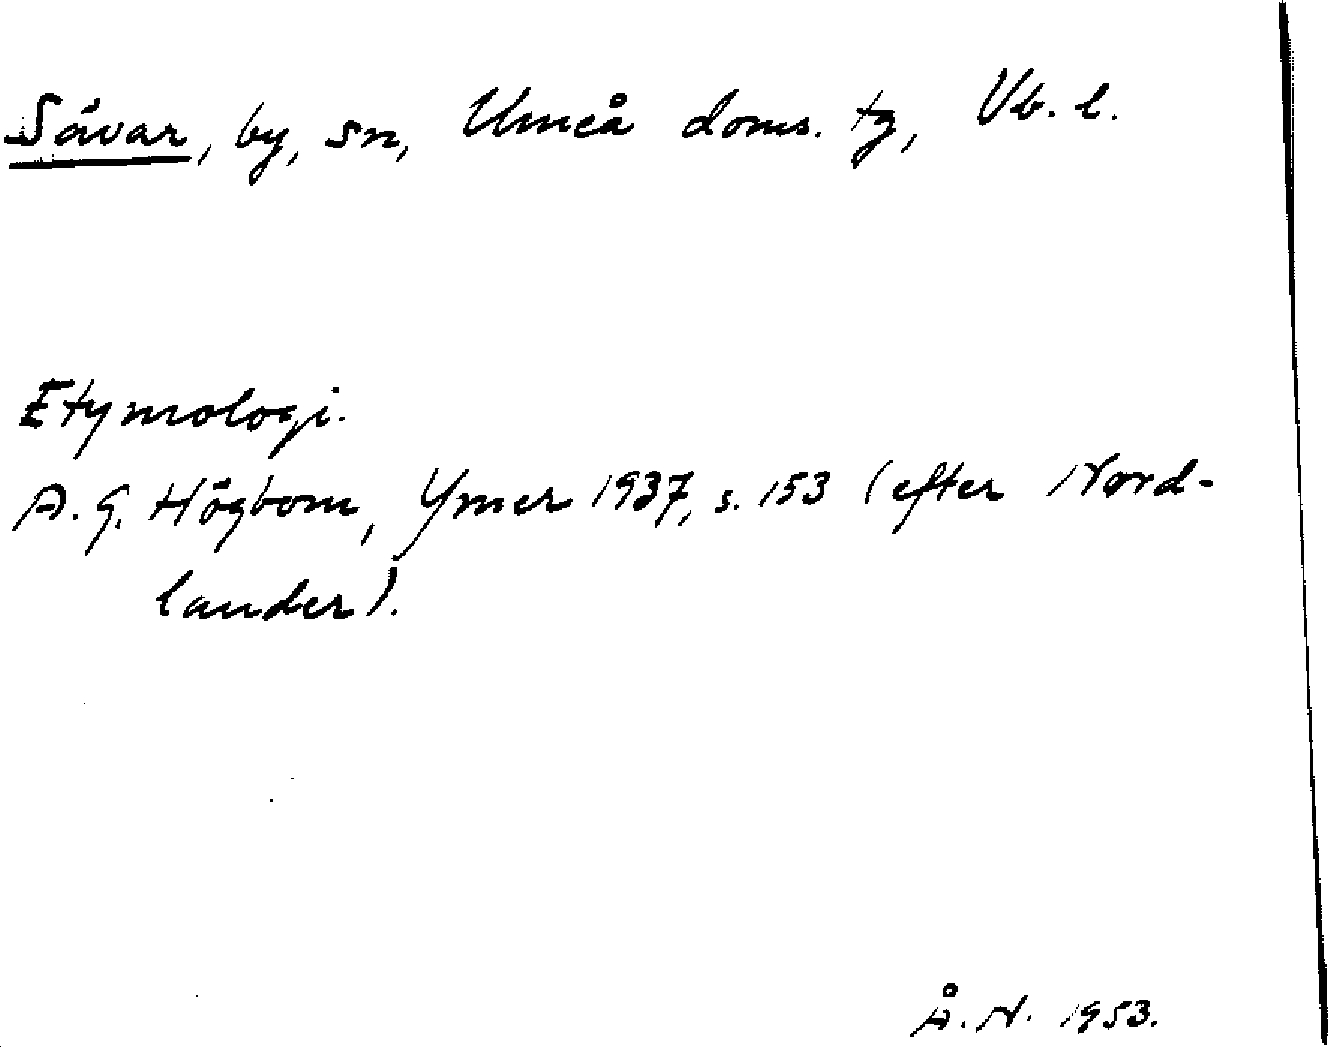 Sävar, by, sn, Umeå doms. tg, Vb. l.
Etymologi.
A. G. Högbom, Ymer 1937, s. 153 (efter Nord-
lander).
Å. N. 1953.